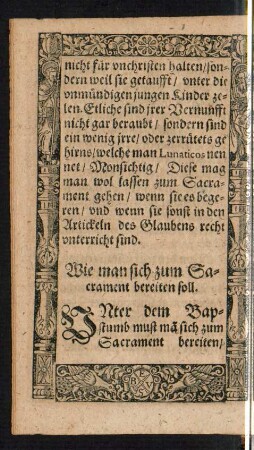 nicht für vnchristen halten/son-
dern weil sie getaufft/ vnter die
vnmündigen jungen Kinder ze-
len. Etliche sind jrer Vernunfft
nicht gar beraubt/ sondern sind
ein wenig jrre/ oder zerrütets ge
hirns/welche man Lunaticos nen
net/ Monsichtig/ Diese mag
man wol lassen zum Sacra-
ment gehen/ wenn sie es bege-
ren/ vnd wenn sie sonst in den
Artickeln des Glaubens recht
vnterricht sind.
Wie man sich zum Sa-
crament bereiten soll.
VNter dem Bap-
stumb must mā sich zum
Sacrament bereiten/